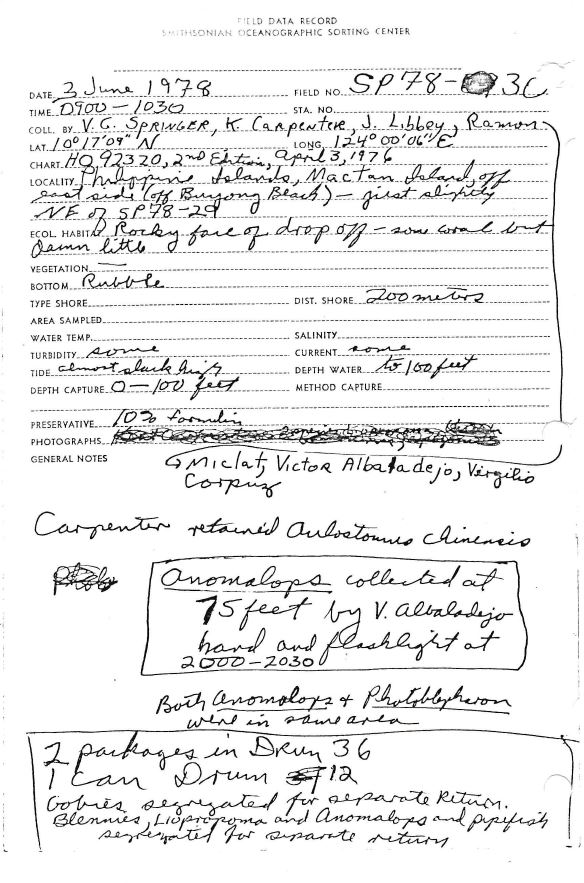 FIELD DATA RECORD
SMITHSONIAN OCEANOGRAPHIC SORTING CENTER
DATE 3 June 1978 FIELD NO. SP78-30
TIME 0900-1030 STA. NO.
COLL. BY V.G. SPRINGER, K Carpenter, J. Libbey, Ramon
LAT. 10°17'09" N LONG. 124°00'06" E
CHART HO 92320, 2nd Edition, April 3, 1976
LOCALITY Philippine Islands, Mactan Island, off
east side (off Buyong Beach) - just slightly
NE of SP78-29
ECOL. HABITAT Rocky face of drop off - some coral but
damn little
VEGETATION —
BOTTOM Rubble
TYPE SHORE DIST. SHORE 200 meters
AREA SAMPLED
WATER TEMP. SALINITY
TURBIDITY some CURRENT some
TIDE almost slack high DEPTH WATER to 100 feet
DEPTH CAPTURE 0-100 feet METHOD CAPTURE
PRESERVATIVE 10% formalin
PHOTOGRAPHS
GENERAL NOTES Miclat, Victor Albaladejo, Virgilio
Corpuz
Carpenter retained Aulostomus chinensis
Anomalops collected at
75 feet by V. Albaladejo
hand and flashlight at
2000-2030
Both Anomalops & Photoblepharon
were in same area
2 packages in Drum 36
1 can Drum 12
Gobies segregated for separate return.
Blennies, Liopropoma and Anomalops and pipefish
segregated for separate return